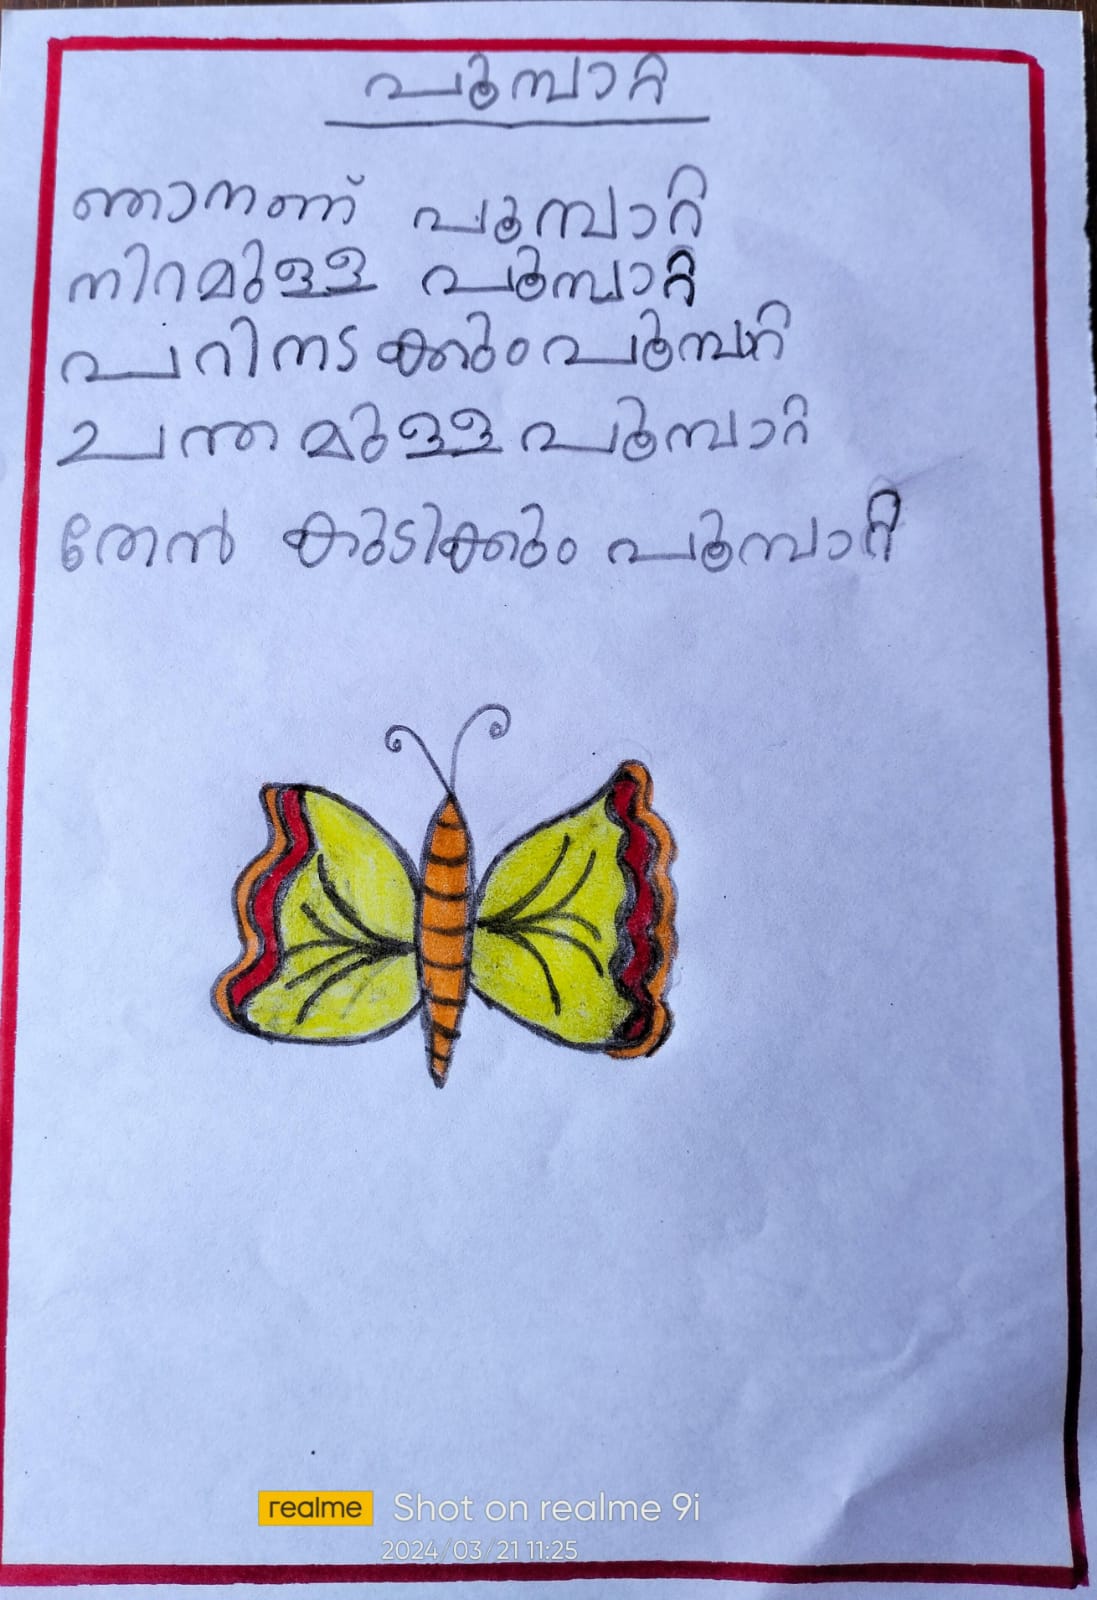 പൂമ്പാറ്റ
ഞാനണ് പൂമ്പാറ്റി
നിറമുള്ള പൂമ്പാറ്റ
പറിനടക്കും പൂമ്പറ്റി
ചന്തമുള്ള പൂമ്പാറ്റ
തേൻ കുടിക്കും പൂമ്പാറ്റി
realme Shot on realme 9i
2024/03/21 11:25